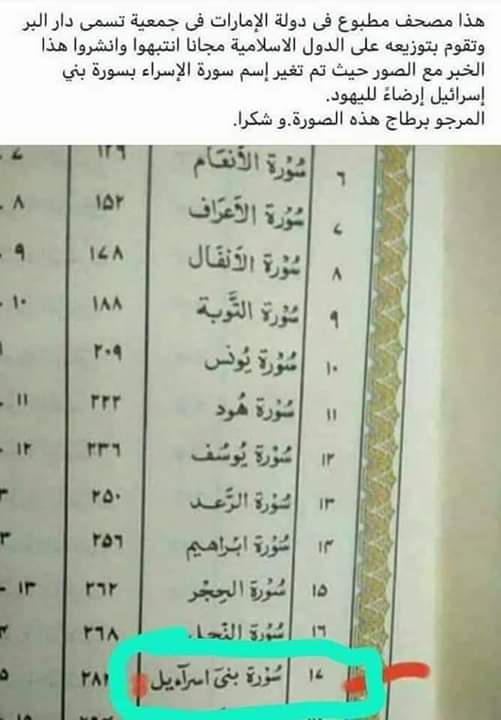 هذا مصحف مطبوع فى دولة الإمارات فى جمعية تسمى دار البر
وتقوم بتوزيعه على الدول الاسلامية مجانا انتبهوا وانشروا هذا
الخبر مع الصور حيث تم تغير إسم سورة الإسراء بسورة بني
إسرائيل إرضاءً لليهود.
المرجو برطاج هذه الصورة.و شكرا.
٦ سُوْرَة الأنعَام ١٢٩
٧ سُوْرَة الأَعرَاف ١٥٢ ٨
٨ سُوْرَة الأنفَال ١٧٨ ٩
٩ سُوْرَة التَّوبَة ١٨٨ ١٠
١٠ سُوْرَة يُونس ٢٠٩
١١ سُوْرَة هُود ٢٢٢ ١١
١٢ سُوْرَة يُوسُف ٢٣٦ ١٢
١٣ سُوْرَة الرَّعد ٢٥٠
١٤ سُوْرَة ابراهيم ٢٥٦
١٥ سُوْرَة الحِجْر ٢٦٢ ١٣
١٦ سُوْرَة النّحل ٢٦٨
١٧ سُوْرَة بنىٓ اسرآءيل